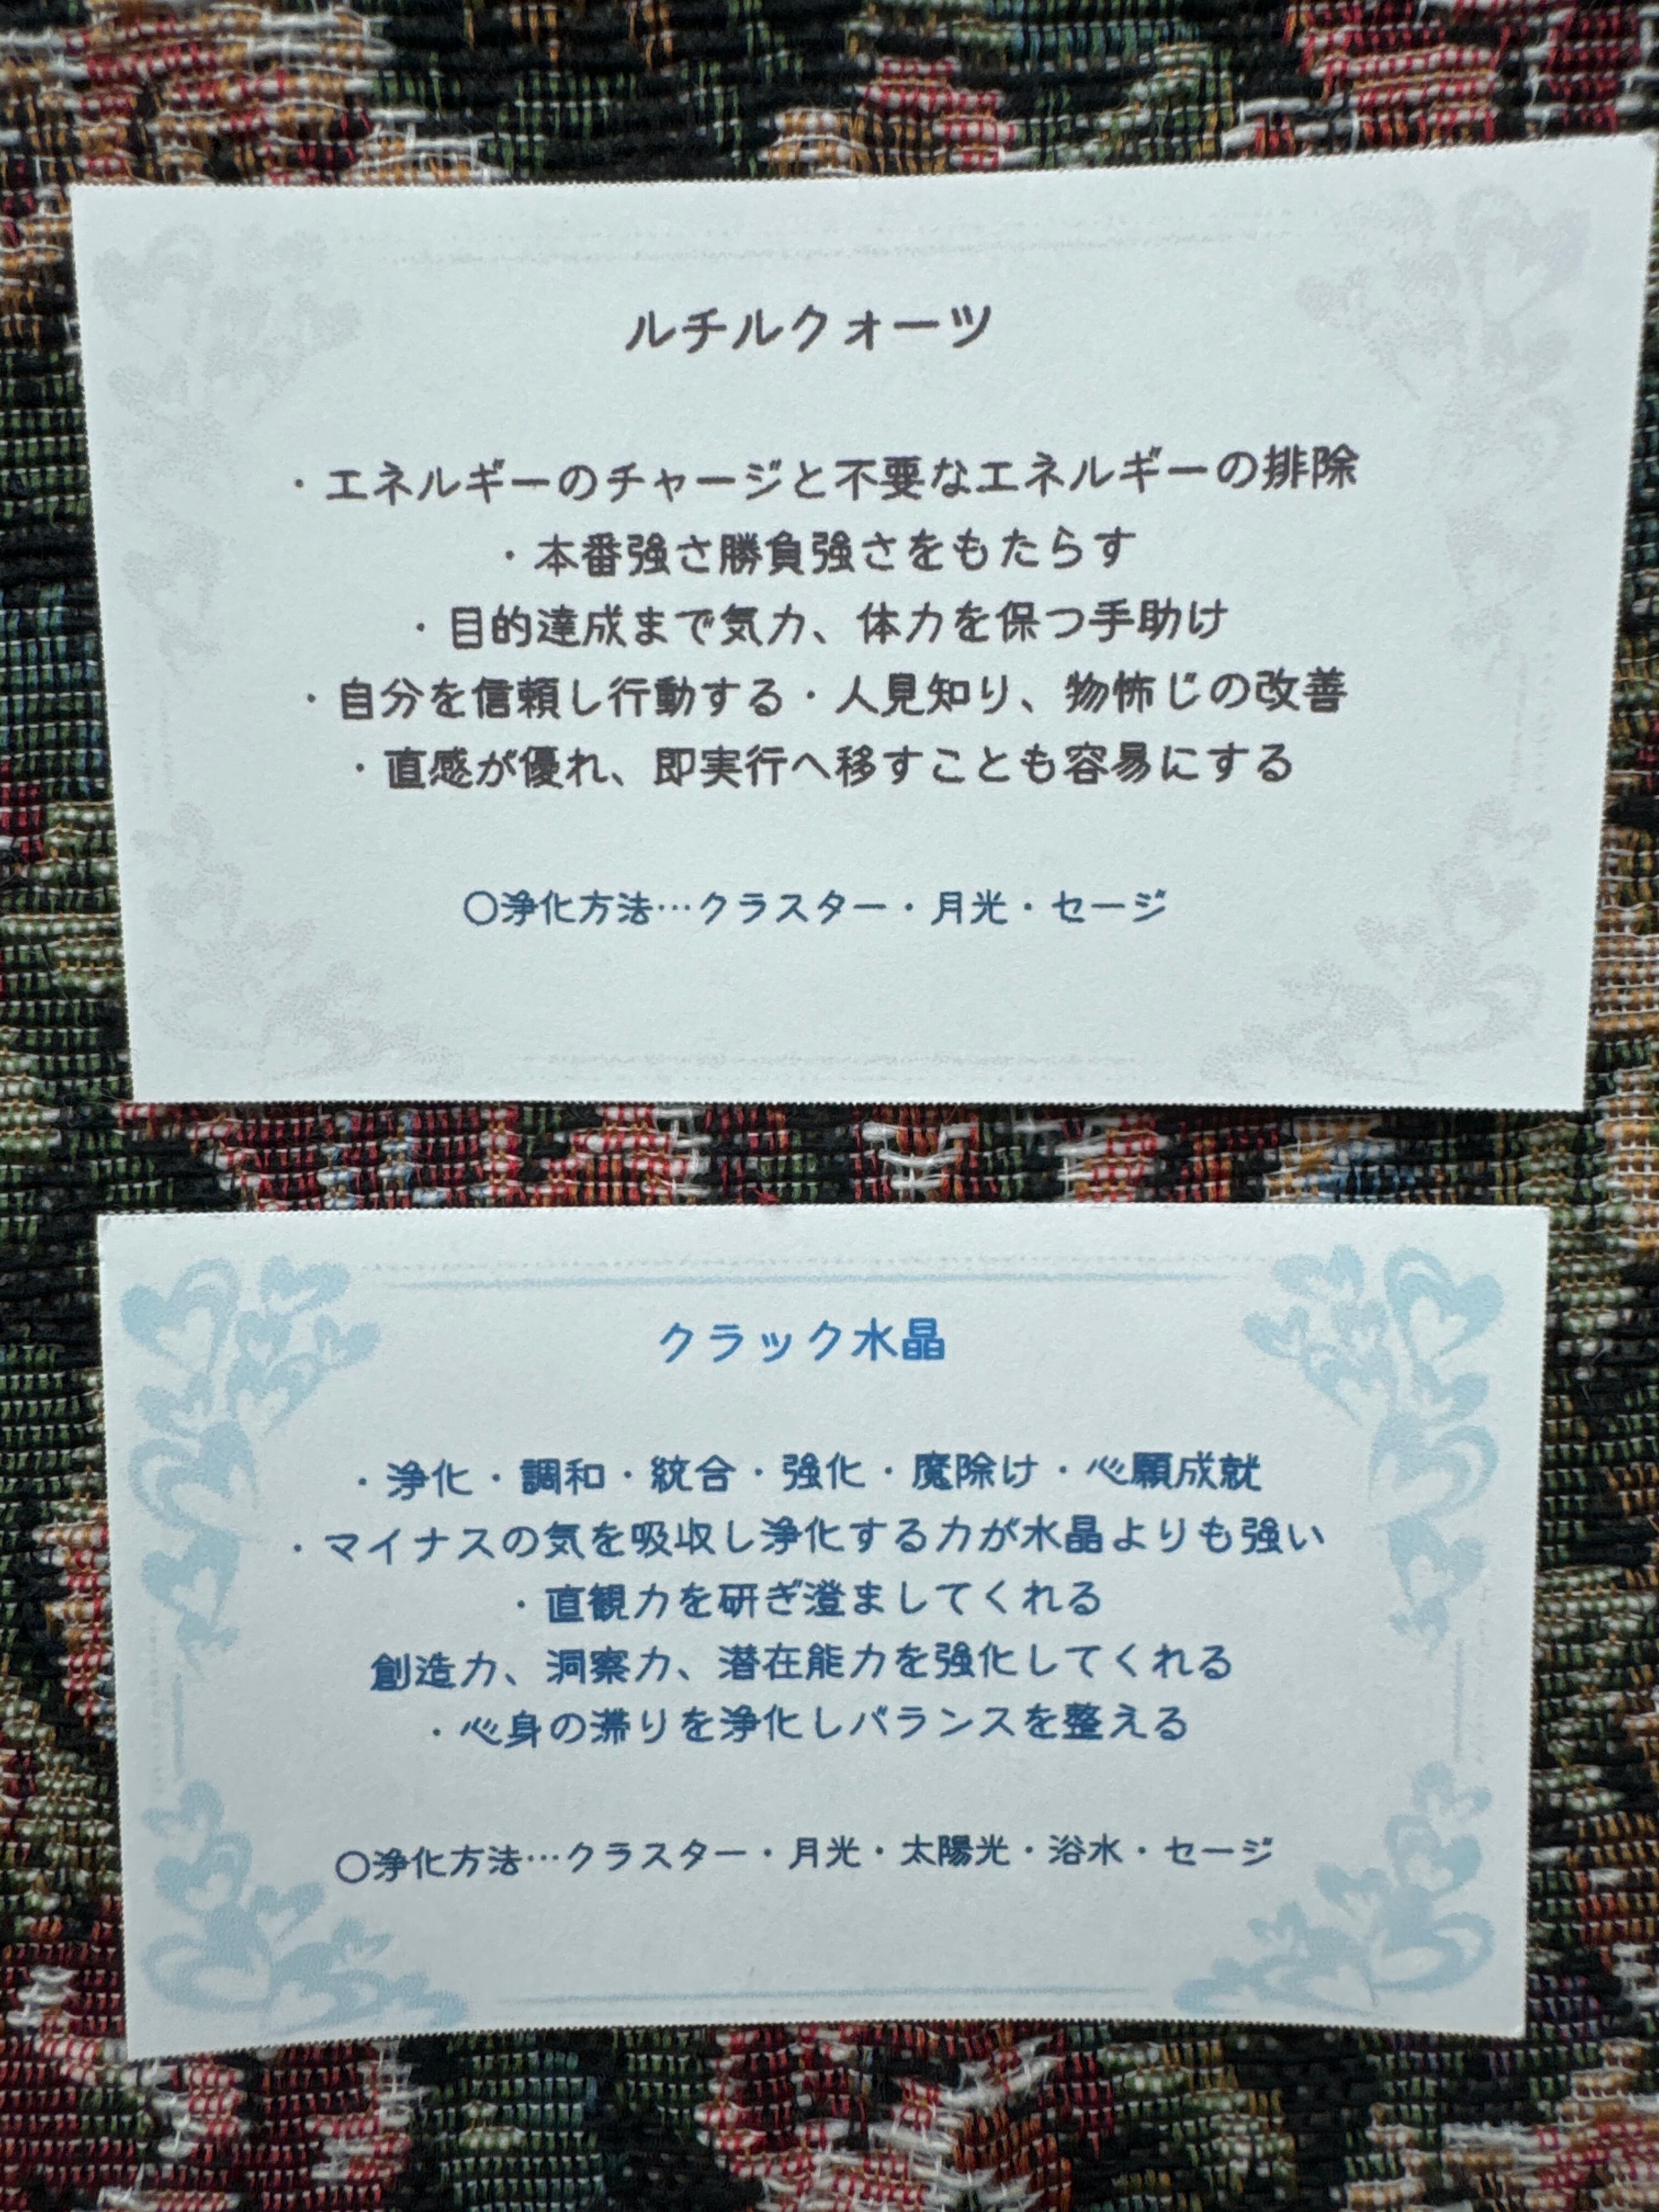 ルチルクォーツ
・エネルギーのチャージと不要なエネルギーの排除
・本番強さ勝負強さをもたらす
・目的達成まで気力、体力を保つ手助け
・自分を信頼し行動する・人見知り、物怖じの改善
・直感が優れ、即実行へ移すことも容易にする
〇浄化方法…クラスター・月光・セージ
クラック水晶
・浄化・調和・統合・強化・魔除け・心願成就
・マイナスの気を吸収し浄化する力が水晶よりも強い
・直観力を研ぎ澄ましてくれる
創造力、洞察力、潜在能力を強化してくれる
・心身の滞りを浄化しバランスを整える
〇浄化方法…クラスター・月光・太陽光・浴水・セージ